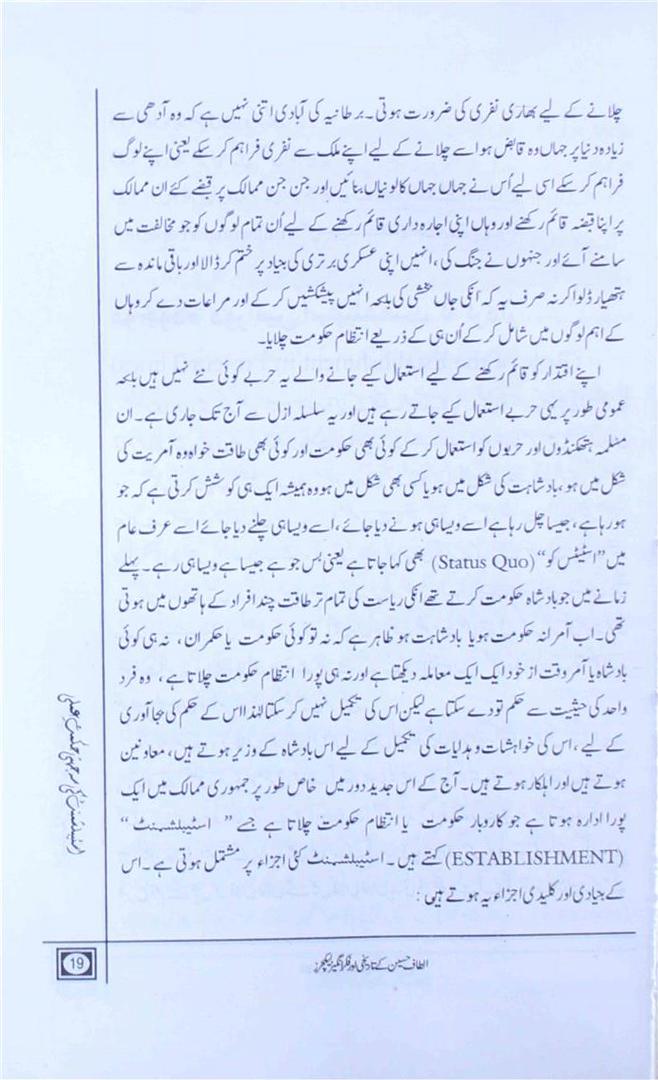 چلانے کے لیے بھاری نفری کی ضرورت ہوتی۔ برطانیہ کی آبادی اتنی نہیں ہے کہ وہ آدھی سے
زیادہ دنیا پر جہاں وہ قابض ہوا سے چلانے کے لیے اپنے ملک سے نفری فراہم کر سکے یعنی اپنے لوگ
فراہم کر سکے اسی لیے اُس نے جہاں جہاں کالونیاں بنائیں اور جن جن ممالک پر قبضے کئے ان ممالک
پر اپنا قبضہ قائم رکھنے اور وہاں اپنی اجارہ داری قائم رکھنے کے لیے اُن تمام لوگوں کو جو مخالفت میں
سامنے آئے اور جنہوں نے جنگ کی، انہیں اپنی عسکری برتری کی بنیاد پر ختم کر ڈالا اور باقی ماندہ سے
ہتھیار ڈلوا کر نہ صرف یہ کہ انکی جاں بخشی کی بلکہ انہیں پیشکشیں کر کے اور مراعات دے کر وہاں
کے اہم لوگوں میں شامل کر کے اُن ہی کے ذریعے انتظام حکومت چلایا۔
اپنے اقتدار کو قائم رکھنے کے لیے استعمال کیے جانے والے یہ حربے کوئی نئے نہیں ہیں بلکہ
عمومی طور پر یہی حربے استعمال کیے جاتے رہے ہیں اور یہ سلسلہ ازل سے آج تک جاری ہے۔ ان
مسلمہ ہتھکنڈوں اور حربوں کو استعمال کر کے کوئی بھی حکومت اور کوئی بھی طاقت خواہ وہ آمریت کی
شکل میں ہو، بادشاہت کی شکل میں ہو یا کسی بھی شکل میں ہو وہ ہمیشہ ایک ہی کوشش کرتی ہے کہ جو
ہو رہا ہے، جیسا چل رہا ہے اسے ویسا ہی ہونے دیا جائے، اسے ویسا ہی چلنے دیا جائے اسے عرف عام
میں ”اسٹیٹس کو“ (Status Quo) بھی کہا جاتا ہے یعنی بس جو ہے جیسا ہے ویسا ہی رہے۔ پہلے
زمانے میں جو بادشاہ حکومت کرتے تھے انکی ریاست کی تمام تر طاقت چند افراد کے ہاتھوں میں ہوتی
تھی۔ اب آمرانہ حکومت ہو یا بادشاہت ہو ظاہر ہے کہ نہ تو کوئی حکومت یا حکمران، نہ ہی کوئی
بادشاہ یا آمر وقت از خود ایک ایک معاملہ دیکھتا ہے اور نہ ہی پورا انتظام حکومت چلاتا ہے، وہ فرد
واحد کی حیثیت سے حکم تو دے سکتا ہے لیکن اس کی تکمیل نہیں کر سکتا لہٰذا اس کے حکم کی بجا آوری
کے لیے، اس کی خواہشات و ہدایات کی تکمیل کے لیے اس بادشاہ کے وزیر ہوتے ہیں، معاونین
ہوتے ہیں اور اہلکار ہوتے ہیں۔ آج کے اس جدید دور میں خاص طور پر جمہوری ممالک میں ایک
پورا ادارہ ہوتا ہے جو کاروبار حکومت یا انتظام حکومت چلاتا ہے جسے ” اسٹیبلشمنٹ “
(ESTABLISHMENT) کہتے ہیں۔ اسٹیبلشمنٹ کئی اجزاء پر مشتمل ہوتی ہے۔ اس
کے بنیادی اور کلیدی اجزاء یہ ہوتے ہیں :
الطاف حسین کے تاریخی اور فکر انگیز لیکچرز
19